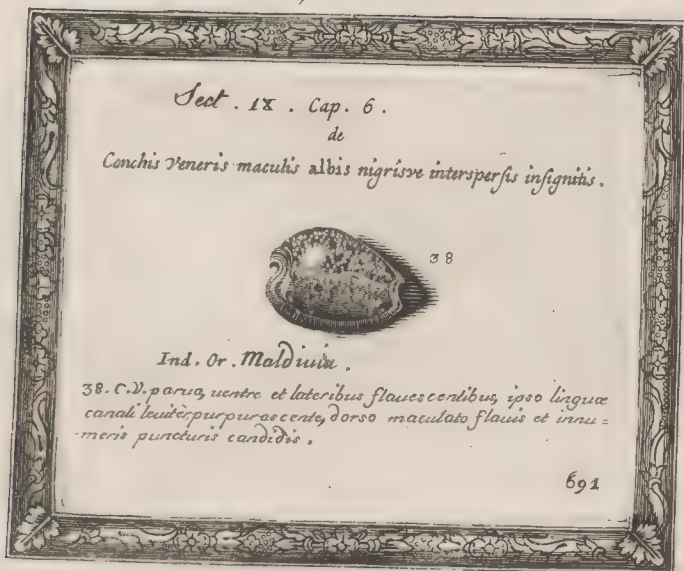 Sect. IX. Cap. 6.
de
Conchis Veneris maculis albis nigrisve interspersis insignitis.
38
Ind. Or. Maldivia.
38. C.V. parva, ventre et lateribus flavescentibus, ipso linguæ
canali leuitèr purpurascente, dorso maculato flavis et innu=
meris puncturis candidis.
691